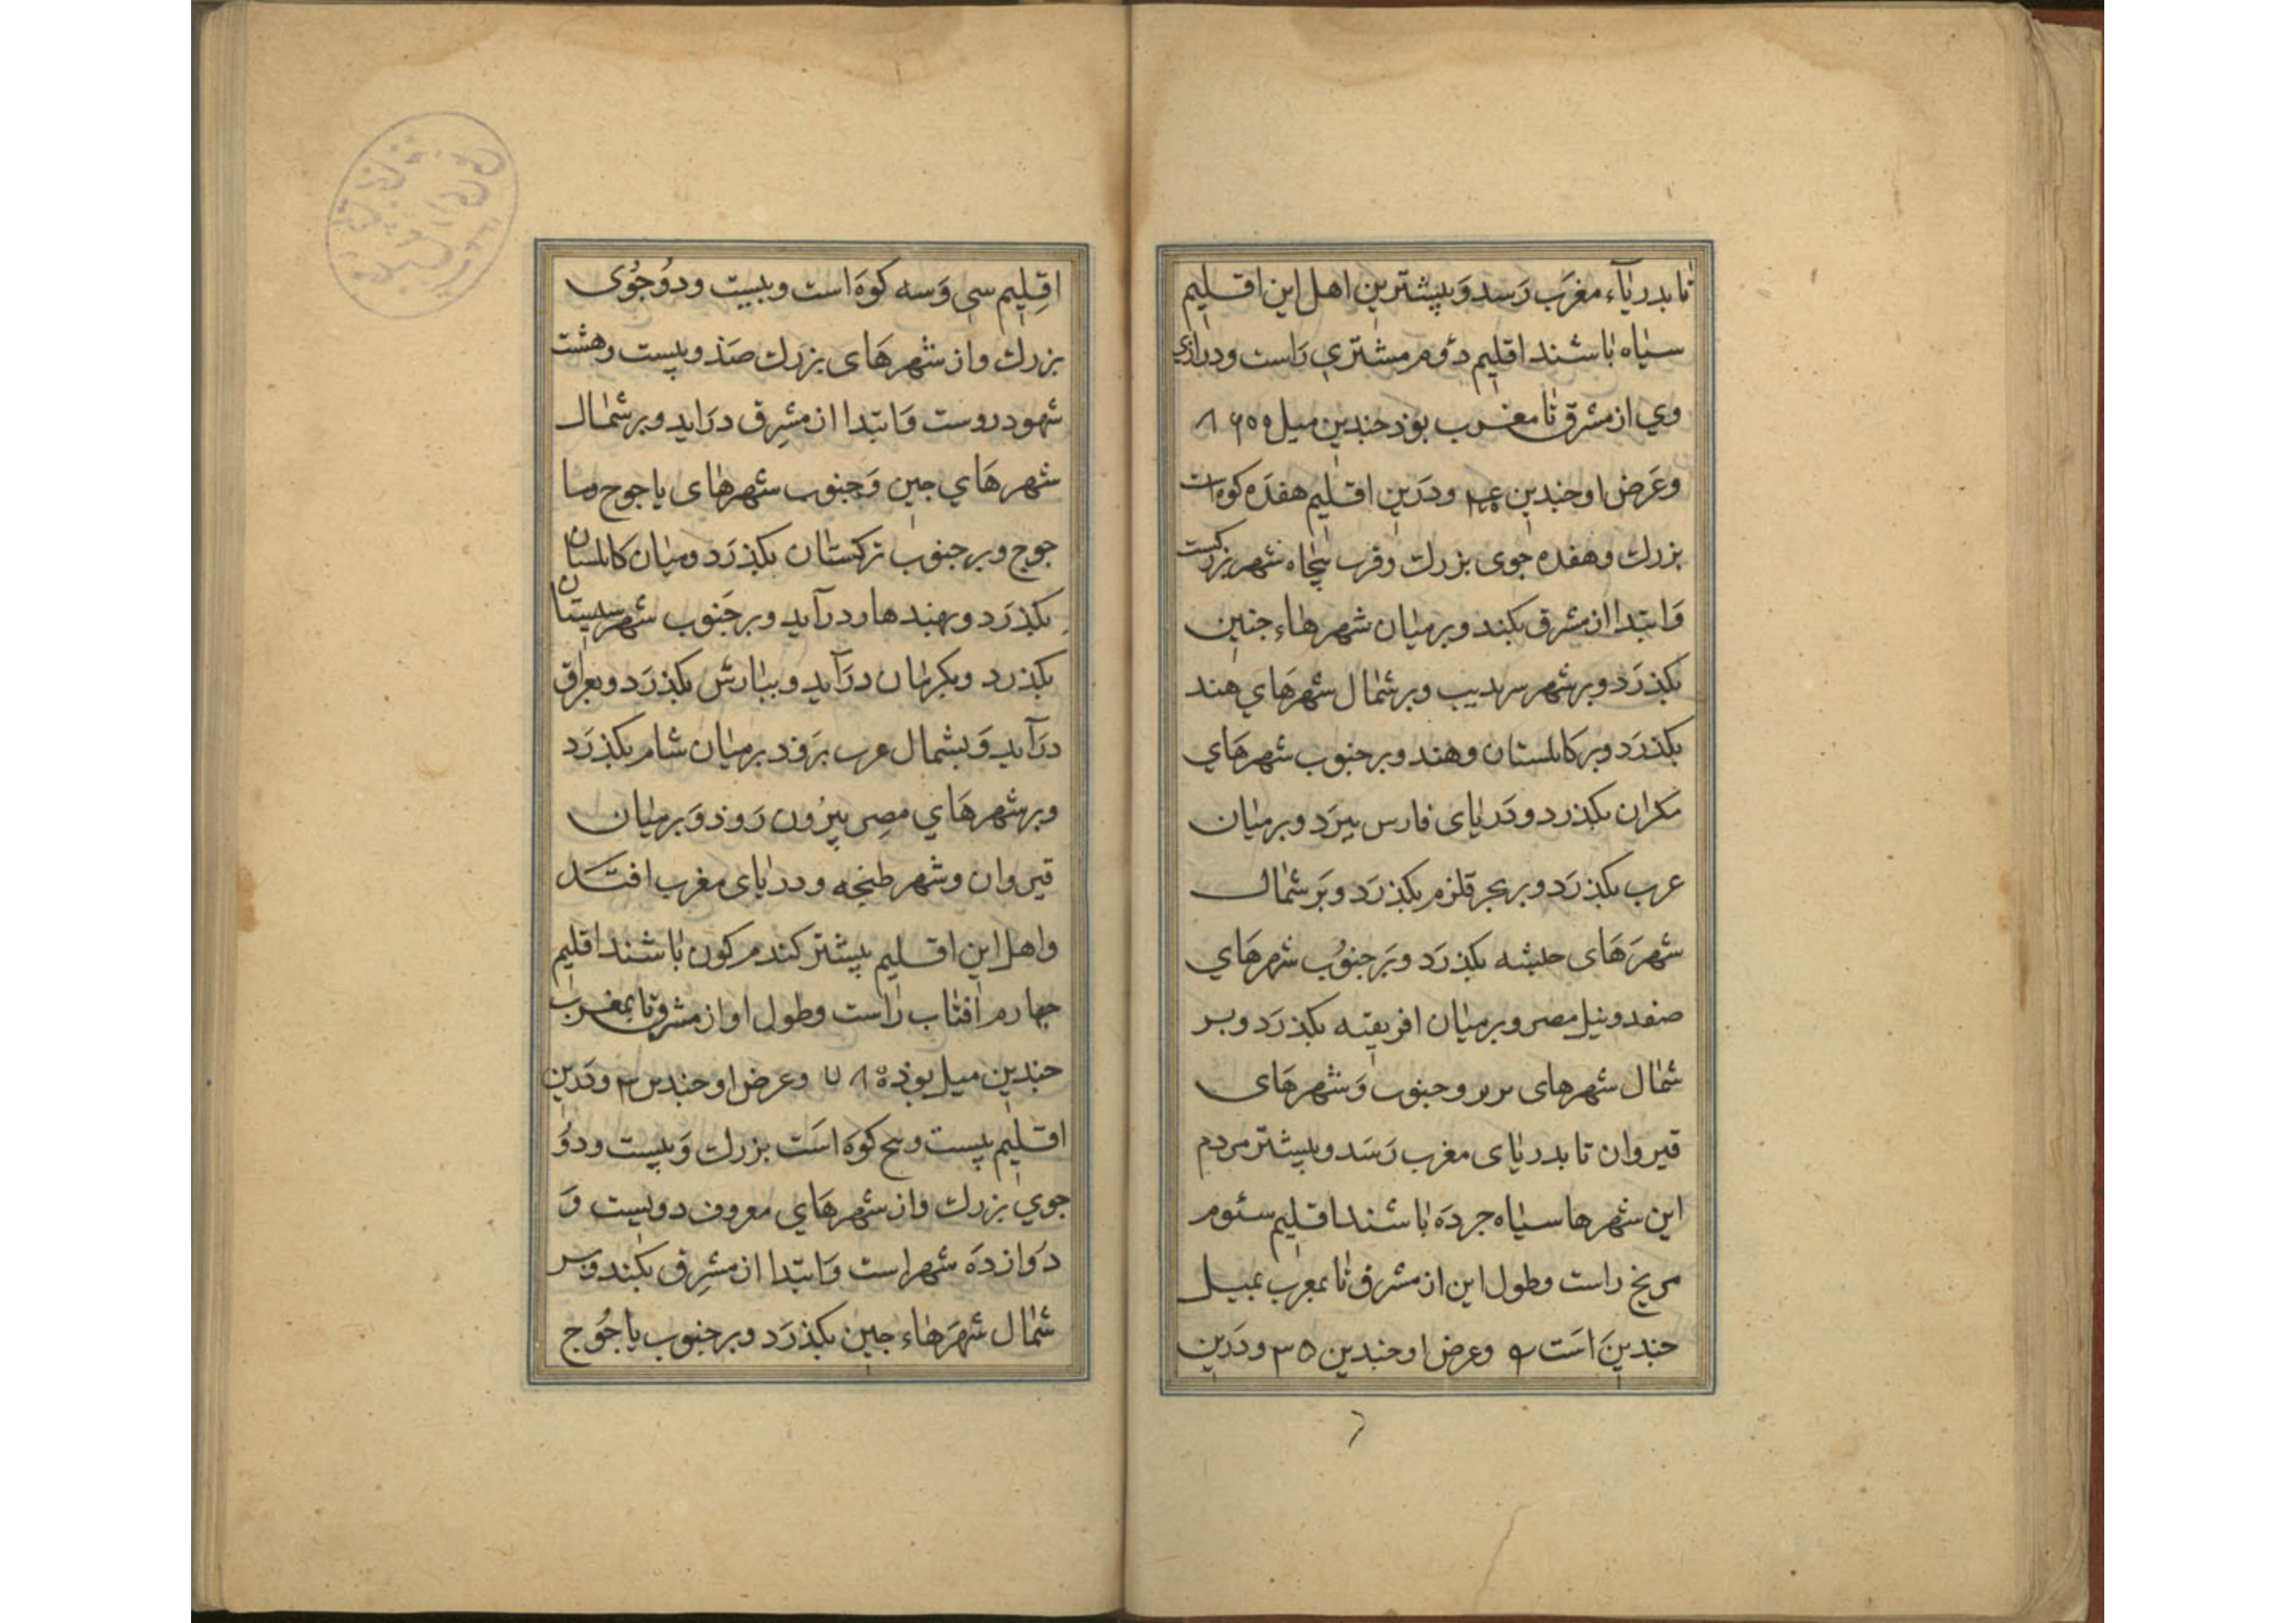 تا بدریاء مغرَب رَسد وَبیشترین اهل این اقلیم
سیاه باشند اقلیم دُوم مشتری رَاست ودرازی
وی از مشرق تا مغرب بوذ جندین میل ۸۶۵۵
وعَرَض او جندین ودرَین اقلیم هفدَه کوه است
بزرك وهفده جوی بزرك وقرب پنجاه شهر بزرکست
وَابتدا از مشرق بکند وبر میان شهرهاء جنین
بکذرَد وبر شهر سرندیب وبر شمال شهرهَای هند
بکذرَد وبر کابلستان وهند وبر جنوب شهرهَای
مکران بکذرد ودَریای فارس ببرَد وبر میان
عرب بکذرَد وبر بحر قلزم بکذرَد وبَر شمال
شهرَهَای حبشه بکذرَد وبَر جنوُب شهرهَای
صفد ونیل مصر وبر میان افریقیه بکذرَد وبر
شمال شهرهای بربر وجنوب وَشهرهَای
قیروان تا بدریای مغرب رَسَد وبیشتر مردم
این شهرها سیاه جردَه باشند اقلیم سئوم
مریخ راست وطول این از مشرق تا بمغرب بمیل
جندینَ است ۹ وعرض او جندین ۳۵ ودَرین
اقِلیم سی وَسه کوه است وبیست ودوُجُوی
بزرك واز شهرهَای بزرك صَذ وبیست وهشت
شهود روست وَابتدا از مشِرق درَاید وبر شمال
شهرهَای جین وَجنوب شهرهای یاجوج وما
جوج وبر جنوب ترکستان بکذرَد ومیان کابلستان
بکذرَد وبهندهار درآید وبر جَنوب شهر سیستان
بکذرد وبکرمان درَآید وببارش بکذرَد وبعراق
درَآید وَبشمال عرب برَوَذ بر میان شام بکذرَد
وبر شهرهَای مصِر بیرُون رَوذ وَبر میان
قیروان وشهر طنجه ودریای مغرب افتَد
واهل این اقلیم بیشتر کندم کون باشند اقلیم
جهارم افتاب رَاست وطول او از مشرق تا بمغرب
جندین میل بوذ ۷۸۵ وعرض او جندین ۳ ودَرین
اقلیم بیست وبنج کوه است بزرك وَبیست ودوَُ
جوی بزرك واز شهرهَای معروف دویست وَ
دَوازدَه شهر است وَابتدا از مشِرق بکند وبر
شمال شهَرهاء جین بکذرَد وبر جنوب یاجُوج